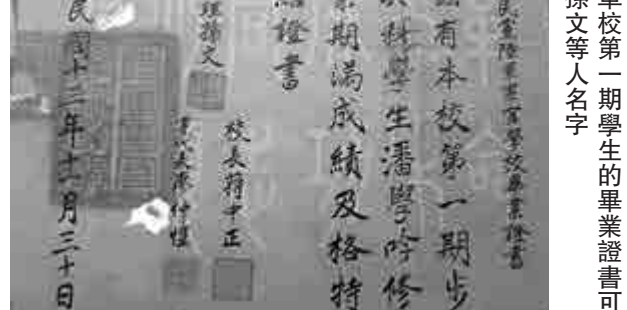 軍校第一期學生的畢業證書可
孫文等人名字
民軍陸軍軍官學校畢業證書
有本校第一期步
科學生潘學吟修
期滿成績及格特
證書
理孫文
校長蔣中正
黨代表廖仲愷
民國十三年十一月三十日